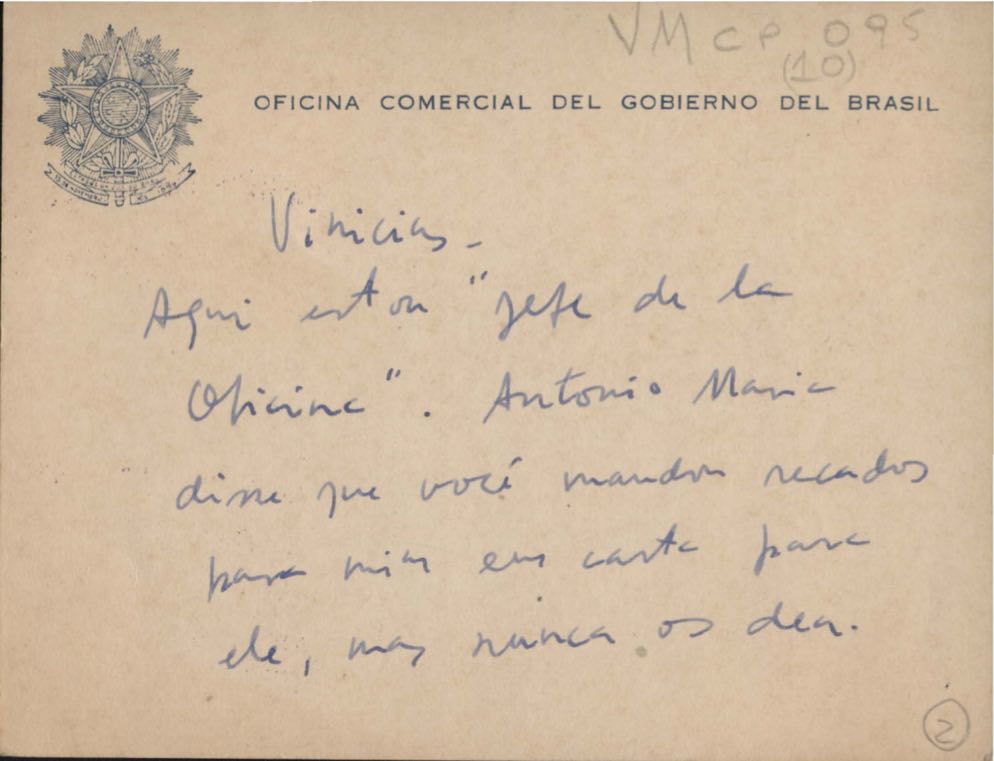 VMCP 095
(10)
OFICINA COMERCIAL DEL GOBIERNO DEL BRASIL
Vinicius -
Aqui estou "jefe de la
Oficina". Antonio Maria
disse que você mandou recados
para mim em carta para
ele, mas nunca os deu.
2